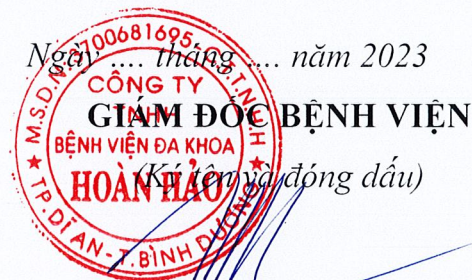 Ngày .... tháng .... năm 2023
GIÁM ĐỐC BỆNH VIỆN
(Ký tên và đóng dấu)
M.S.D.N:3700681695-C.T.T.N.H.H
CÔNG TY
TNHH
BỆNH VIỆN ĐA KHOA
HOÀN HẢO
TP.DĨ AN - T.BÌNH DƯƠNG